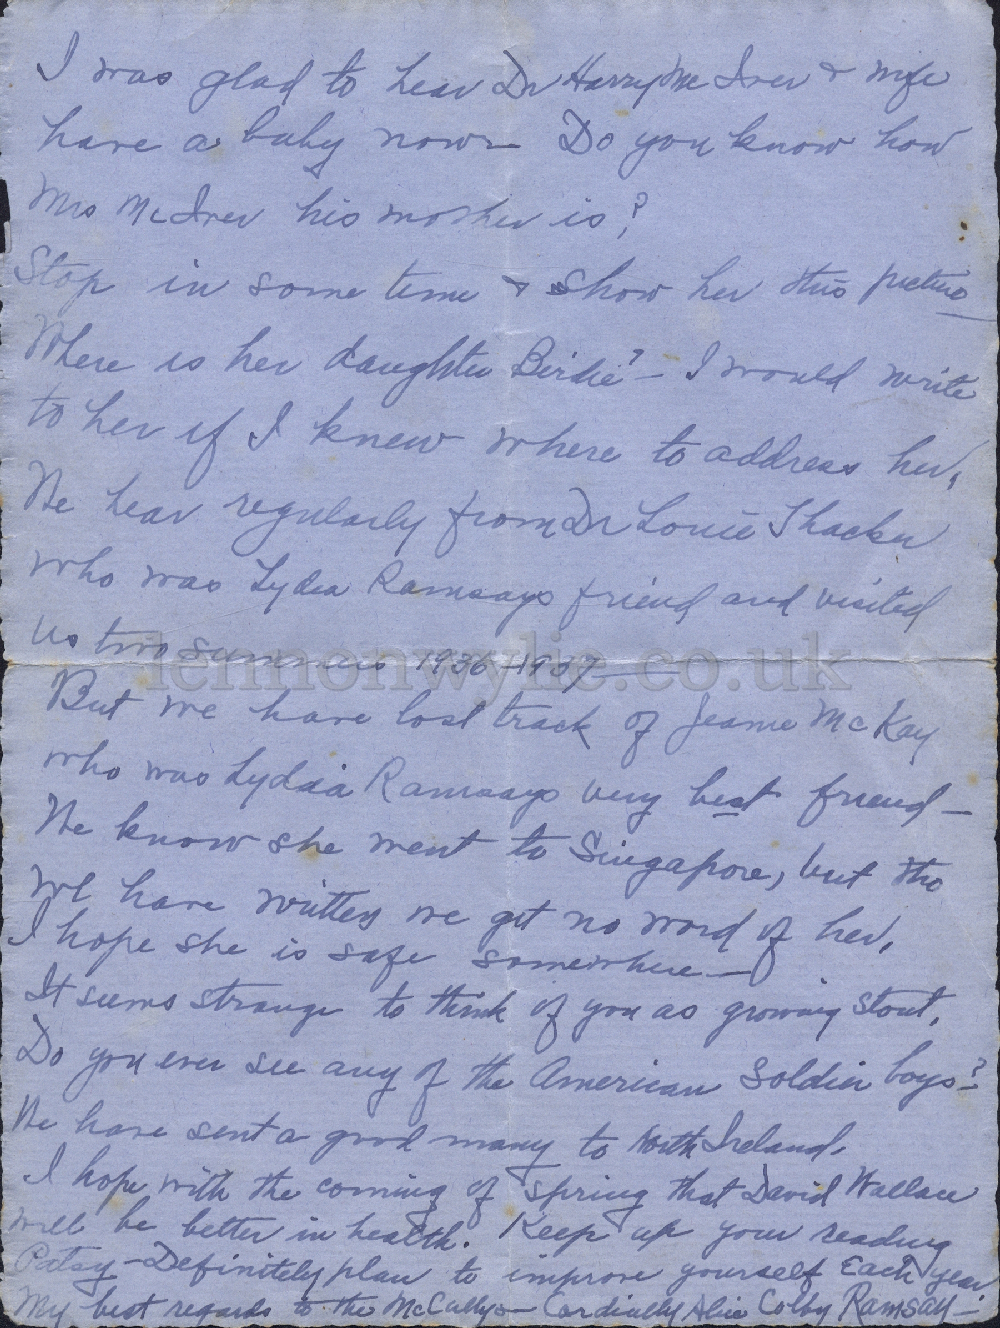 I was glad to hear Dr Harry McIver & wife
have a baby now — Do you know how
Mrs McIver his mother is?
Stop in some time & show her this picture
Where is her daughter Birdie? — I would write
to her if I knew where to address her.
We hear regularly from Dr Louie Thacker
who was Lydia Ramsays friend and visited
us two summers 1936–1937 —
lennonwylie.co.uk
But we have lost track of Jeanne McKay
who was Lydia Ramsays very best friend —
We know she went to Singapore, but tho
we have written we get no word of her,
I hope she is safe somewhere —
It seems strange to think of you as growing stout.
Do you ever see any of the American Soldier boys? —
We have sent a good many to North Ireland.
I hope with the coming of spring that David Wallace
will be better in health. Keep up your reading
Patsy — Definitely plan to improve yourself each year.
My best regards to the McCullys — Cordially Alice Colby Ramsay —